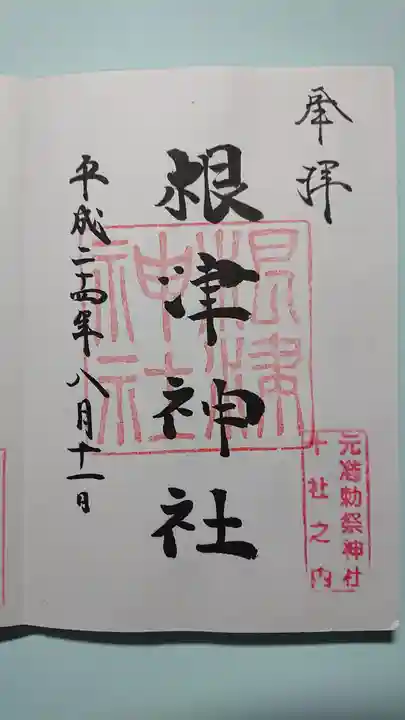 奉拝
根津神社
根津
神社
平成二十四年八月十一日
元准勅祭神社
十社之内